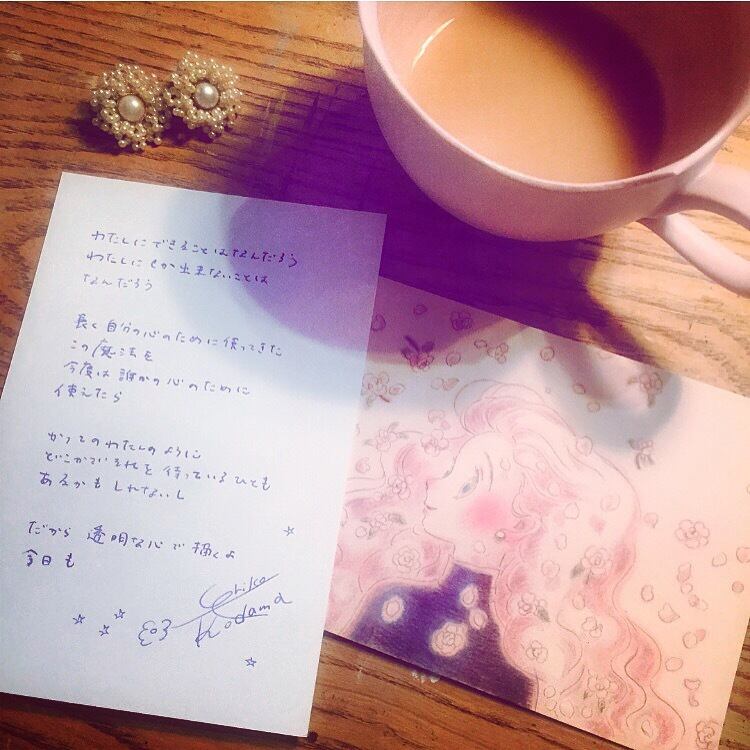 わたしにできることはなんだろう
わたしにしか出来ないことは
なんだろう
長く自分の心のために使ってきた
この魔法を
今度は誰かの心のために
使えたら
かつてのわたしのように
どこかでそれを待っているひとも
あるかもしれないし
だから 透明な心で描くよ
今日も
Kodama